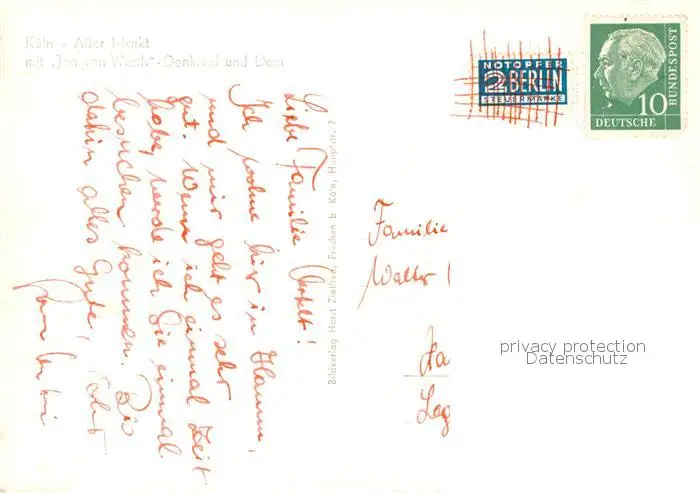 Köln - Alter Markt
mit „Jan von Werth"-Denkmal und Dom
NOTOPFER
2 BERLIN
STEUERMARKE
10
DEUTSCHE
BUNDESPOST
Liebe Familie
Ich wohne hier in
und mir geht es sehr
gut. Wenn ich einmal Zeit
habe, werde ich Sie einmal
besuchen kommen. Bis
dahin alles Gute!
Bildverlag Horst Ziethen, Frechen b. Köln, Hauptstr. 7
Familie
Walter
Ha
privacy protection
Datenschutz
Leg